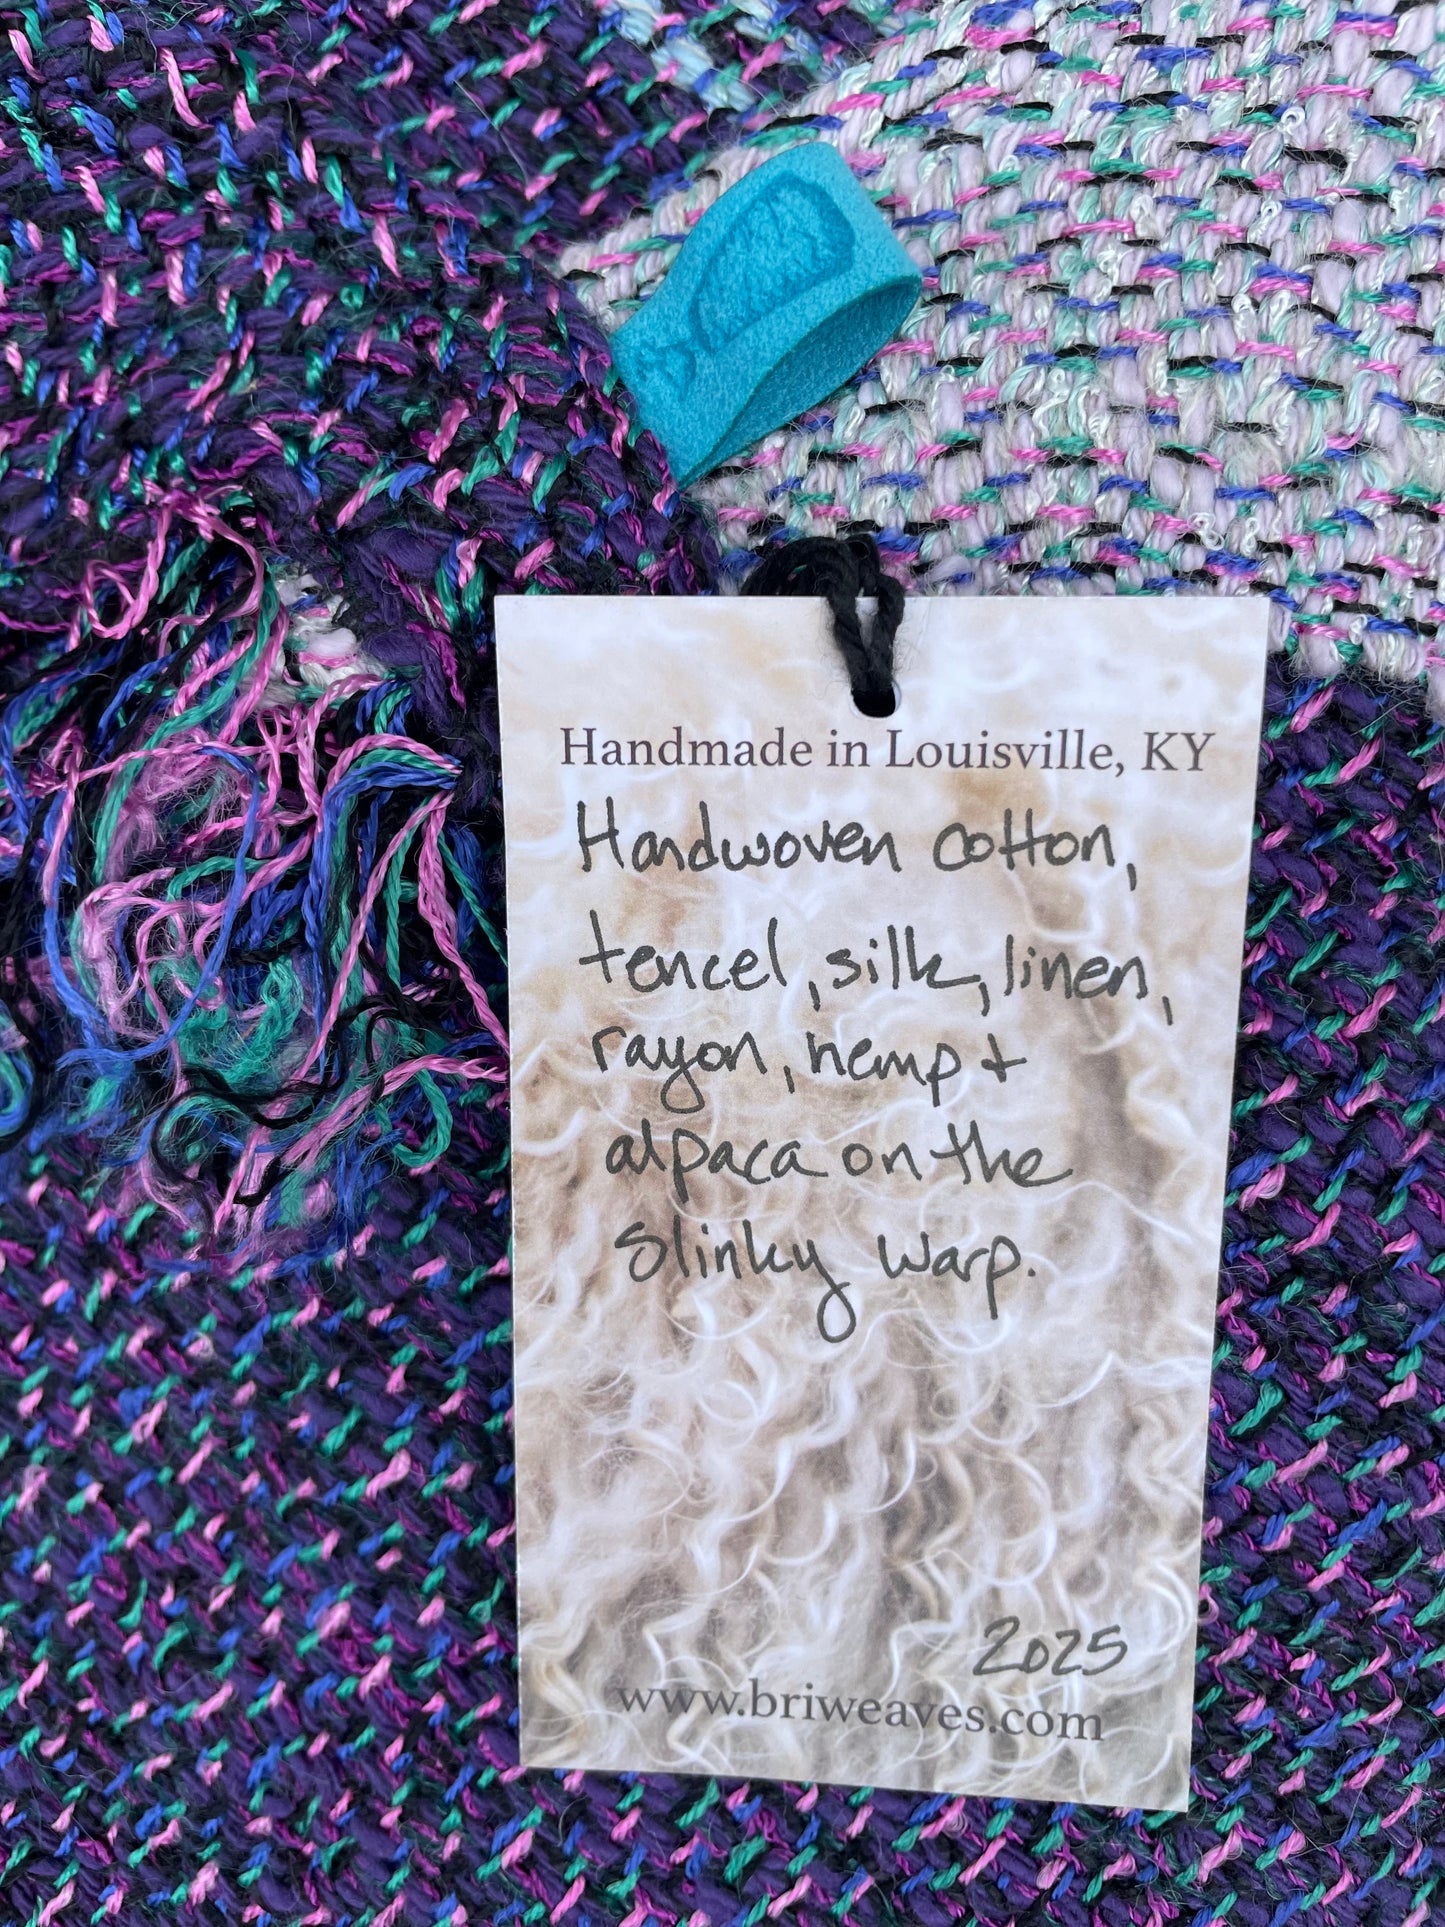 Handmade in Louisville, KY
Handwoven cotton,
tencel, silk, linen,
rayon, hemp +
alpaca on the
Slinky warp.
2025
www.briweaves.com